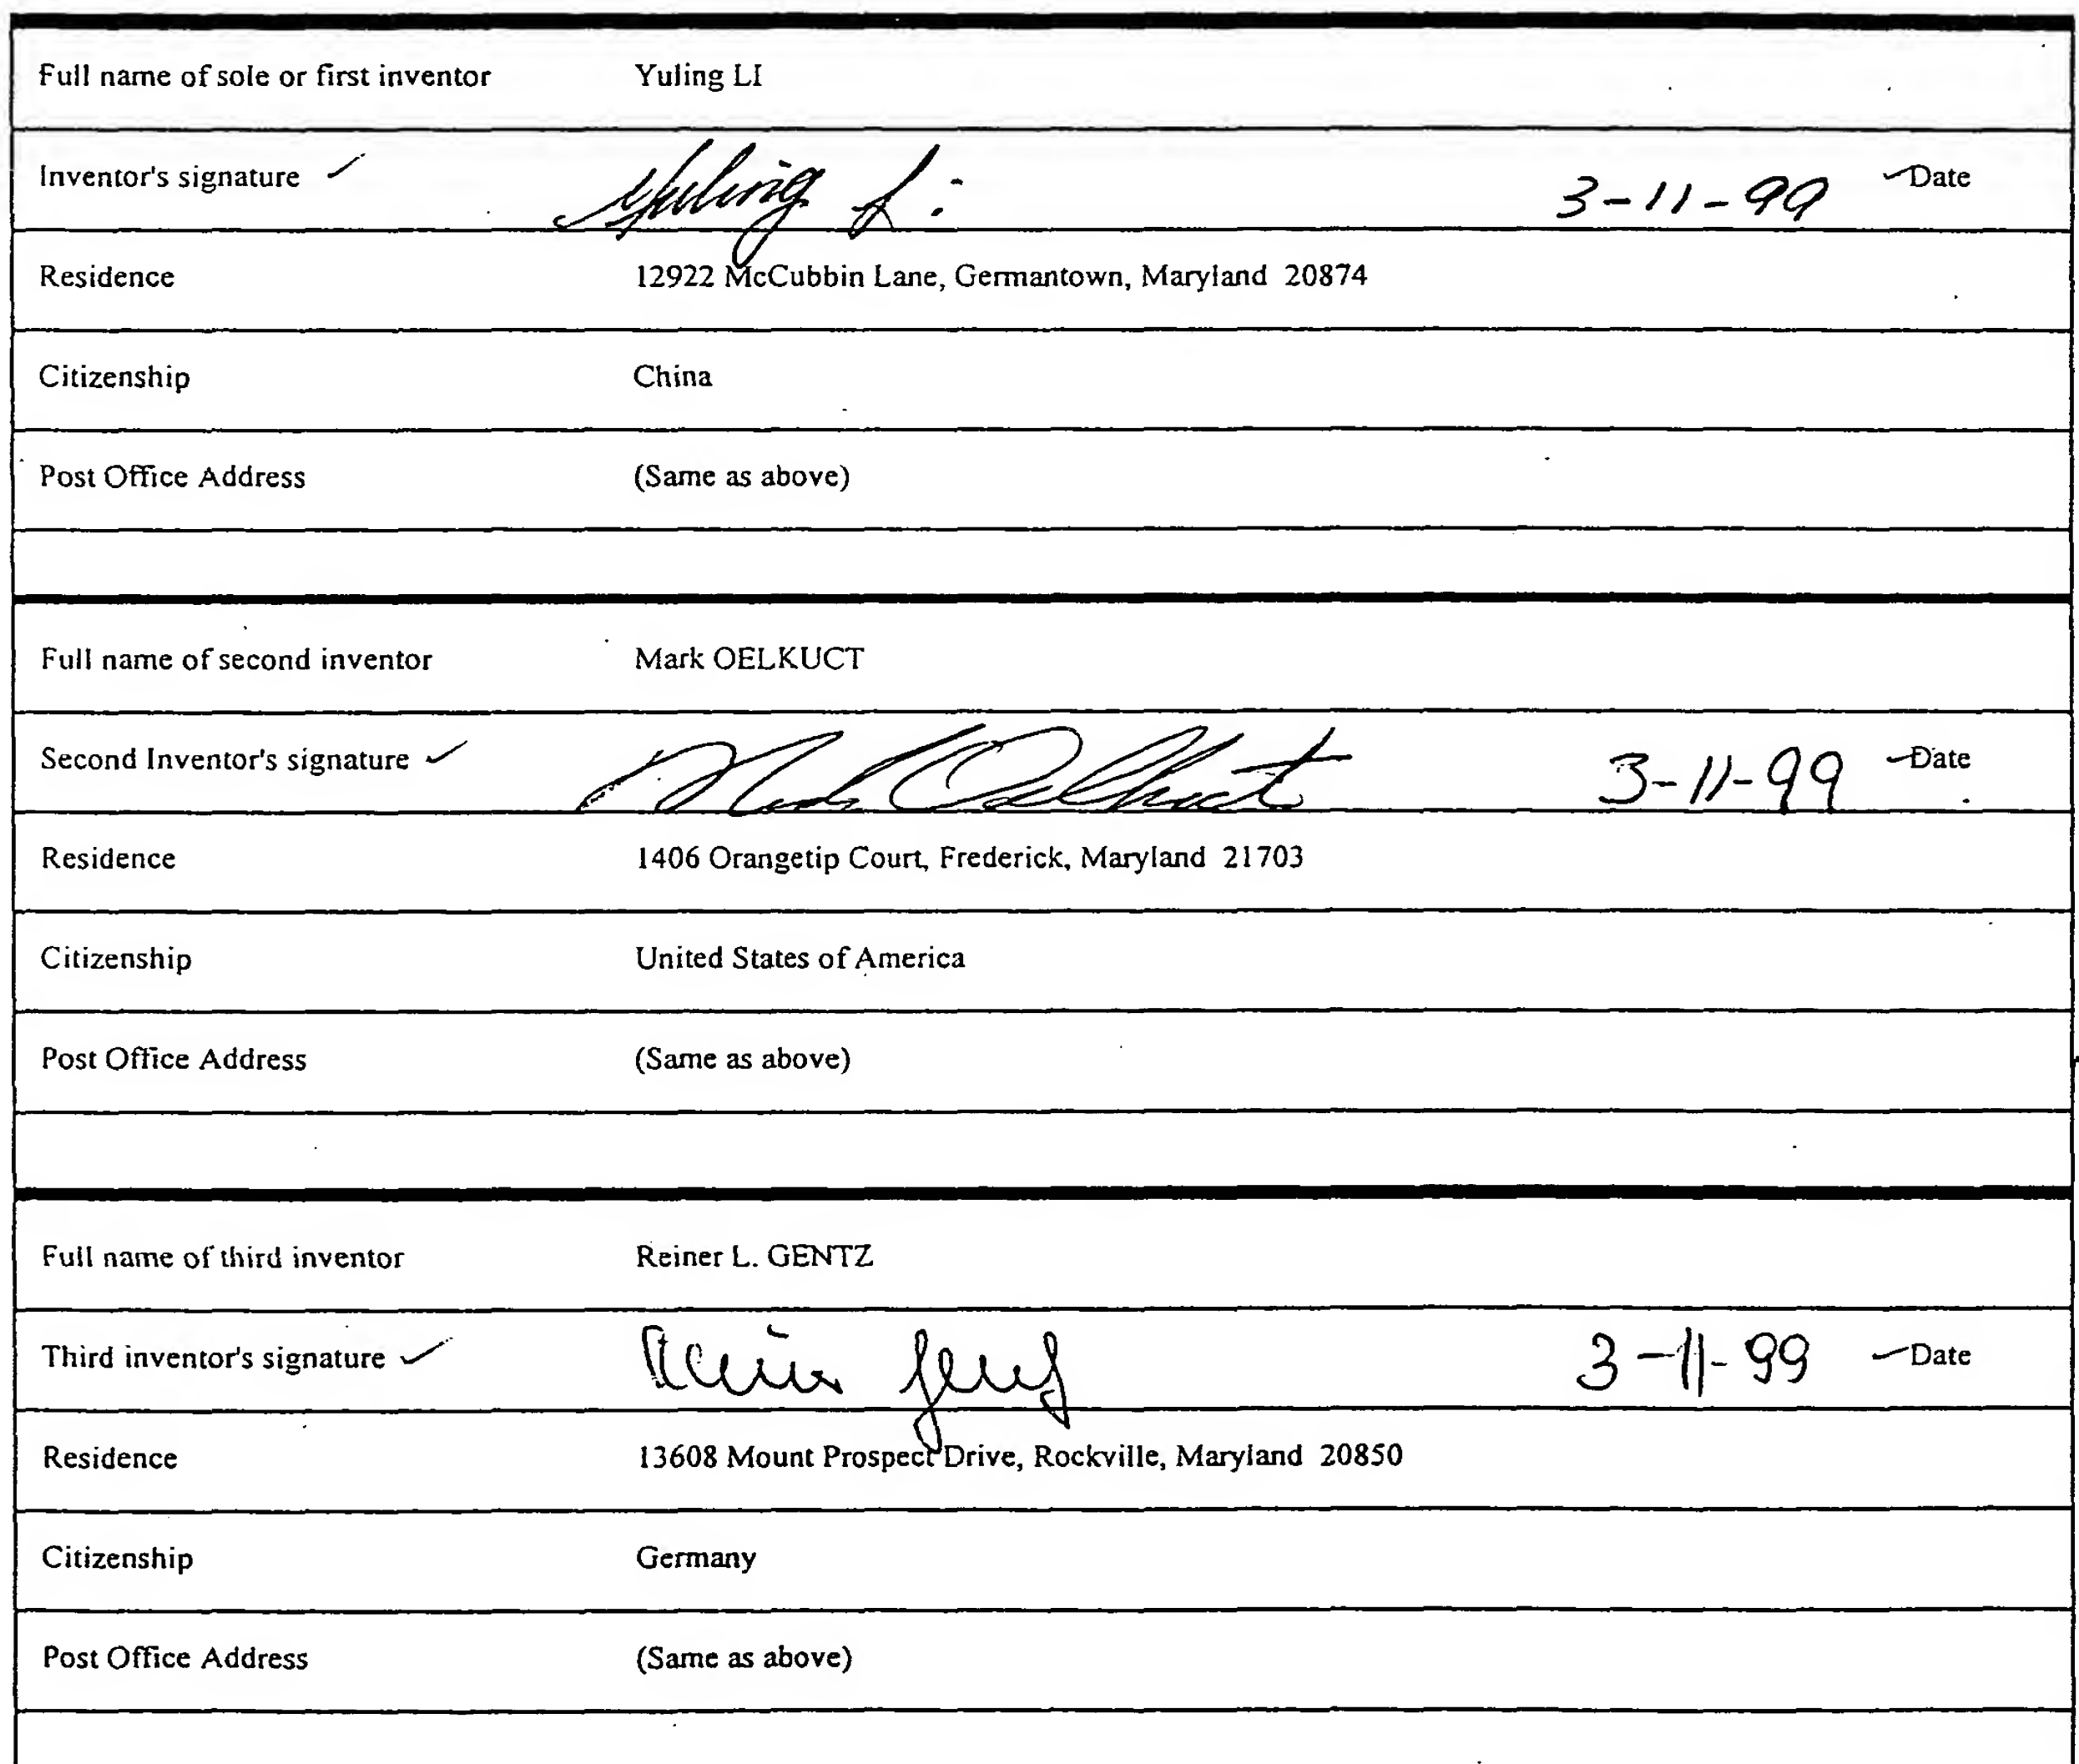 Full name of sole or first inventor Yuling LI
Inventor's signature ✓ Yuling Li 3-11-99 Date
Residence 12922 McCubbin Lane, Germantown, Maryland 20874
Citizenship China
Post Office Address (Same as above)
Full name of second inventor Mark OELKUCT
Second Inventor's signature ✓ Mark Oelkuct 3-11-99 Date
Residence 1406 Orangetip Court, Frederick, Maryland 21703
Citizenship United States of America
Post Office Address (Same as above)
Full name of third inventor Reiner L. GENTZ
Third inventor's signature ✓ Reiner Gentz 3-11-99 Date
Residence 13608 Mount Prospect Drive, Rockville, Maryland 20850
Citizenship Germany
Post Office Address (Same as above)